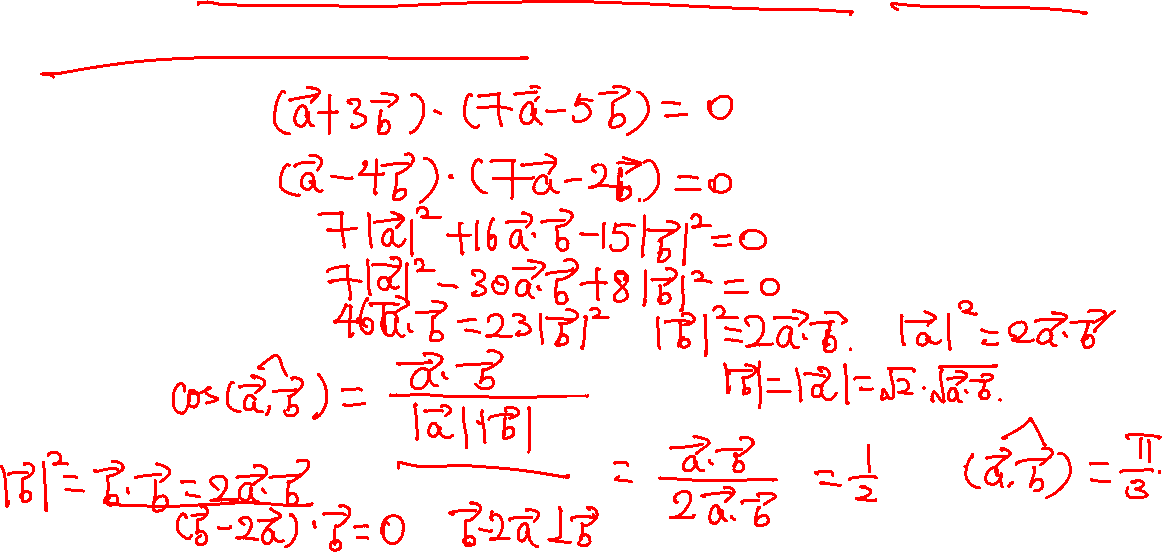 (a⃗+3b⃗)·(7a⃗-5b⃗)=0
(a⃗-4b⃗)·(7a⃗-2b⃗)=0
7|a⃗|²+16a⃗·b⃗-15|b⃗|²=0
7|a⃗|²-30a⃗·b⃗+8|b⃗|²=0
46a⃗·b⃗=23|b⃗|² |b⃗|²=2a⃗·b⃗. |a⃗|²=2a⃗·b⃗
|b⃗|=|a⃗|=√2·√(a⃗·b⃗).
cos(a⃗,b⃗)=(a⃗·b⃗)/(|a⃗|·|b⃗|)
=(a⃗·b⃗)/(2a⃗·b⃗)=1/2 (a⃗,b⃗)=π/3.
|b⃗|²=b⃗·b⃗=2a⃗·b⃗
(b⃗-2a⃗)·b⃗=0 b⃗-2a⃗⊥b⃗